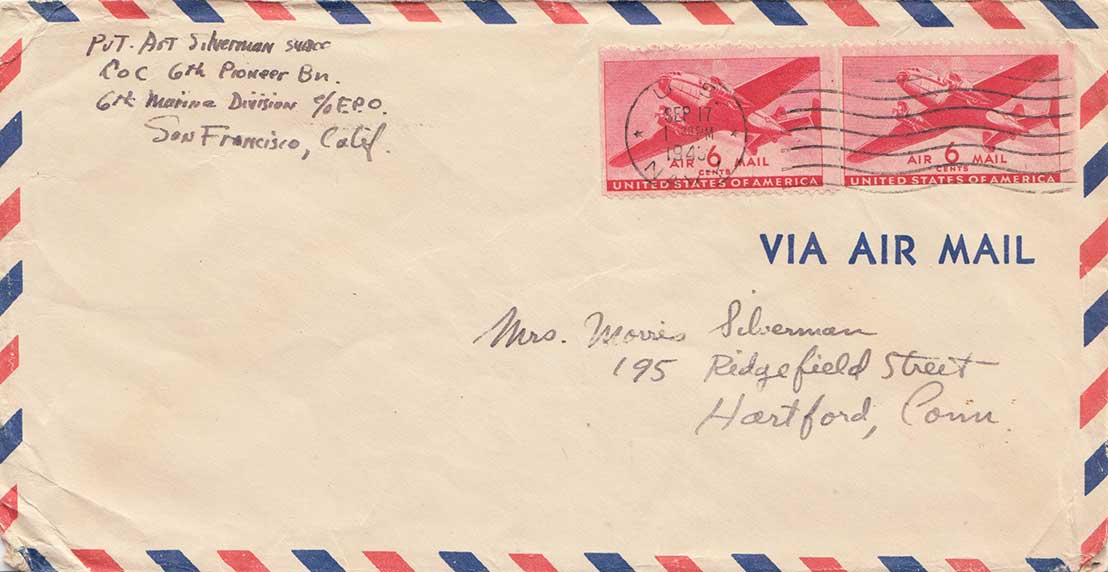 PVT. Art Silverman USMCR
Co C 6th Pioneer Bn.
6th Marine Division c/o F.P.O.
San Francisco, Calif.
U.S.
SEP 17
1 PM
194
NAVY
AIR 6 MAIL
CENTS
UNITED STATES OF AMERICA
AIR 6 MAIL
CENTS
UNITED STATES OF AMERICA
VIA AIR MAIL
Mrs. Morris Silverman
195 Ridgefield Street
Hartford, Conn.